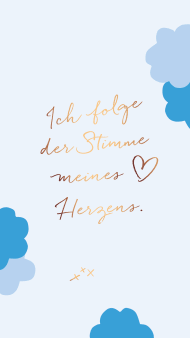 Ich folge
der Stimme
meines ♡
Herzens.
xxx